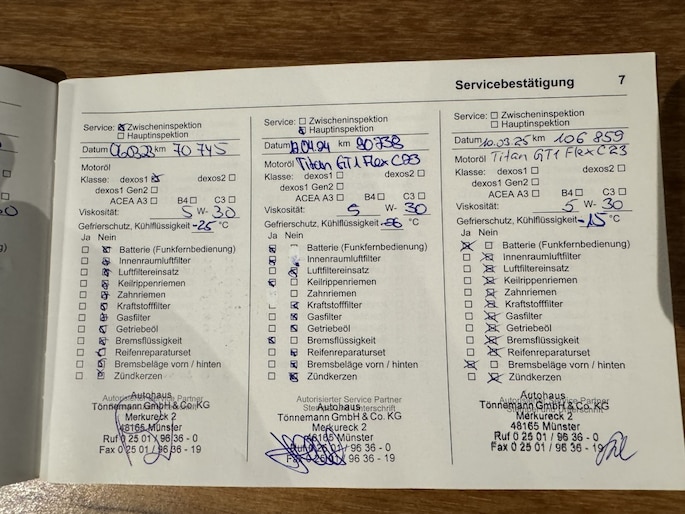 Servicebestätigung 7
Service: Zwischeninspektion
Hauptinspektion
Datum km 70 745
Motoröl
Klasse: dexos1 dexos2
dexos1 Gen2
ACEA A3 B4 C3
Viskosität: 5 W- 30
Gefrierschutz, Kühlflüssigkeit -25 °C
Ja Nein
Batterie (Funkfernbedienung)
Innenraumluftfilter
Luftfiltereinsatz
Keilrippenriemen
Zahnriemen
Kraftstofffilter
Gasfilter
Getriebeöl
Bremsflüssigkeit
Reifenreparaturset
Bremsbeläge vorn / hinten
Zündkerzen
Autorisierter Service Partner
Autohaus
Tönnemann GmbH & Co. KG
Merkureck 2
48165 Münster
Ruf 0 25 01 / 96 36 - 0
Fax 0 25 01 / 96 36 - 19
Service: Zwischeninspektion
Hauptinspektion
Datum km 90738
Motoröl Titan GT1 Flex C23
Klasse: dexos1 dexos2
dexos1 Gen2
ACEA A3 B4 C3
Viskosität: 5 W- 30
Gefrierschutz, Kühlflüssigkeit °C
Ja Nein
Batterie (Funkfernbedienung)
Innenraumluftfilter
Luftfiltereinsatz
Keilrippenriemen
Zahnriemen
Kraftstofffilter
Gasfilter
Getriebeöl
Bremsflüssigkeit
Reifenreparaturset
Bremsbeläge vorn / hinten
Zündkerzen
Autorisierter Service Partner
Autohaus
Tönnemann GmbH & Co. KG
Merkureck 2
48165 Münster
Ruf 0 25 01 / 96 36 - 0
Fax 0 25 01 / 96 36 - 19
Service: Zwischeninspektion
Hauptinspektion
Datum 10.03.25 km 106 859
Motoröl Titan GT1 Flex C23
Klasse: dexos1 dexos2
dexos1 Gen2
ACEA A3 B4 C3
Viskosität: 5 W- 30
Gefrierschutz, Kühlflüssigkeit -15 °C
Ja Nein
Batterie (Funkfernbedienung)
Innenraumluftfilter
Luftfiltereinsatz
Keilrippenriemen
Zahnriemen
Kraftstofffilter
Gasfilter
Getriebeöl
Bremsflüssigkeit
Reifenreparaturset
Bremsbeläge vorn / hinten
Zündkerzen
Autorisierter Service Partner
Autohaus
Tönnemann GmbH & Co. KG
Merkureck 2
48165 Münster
Ruf 0 25 01 / 96 36 - 0
Fax 0 25 01 / 96 36 - 19